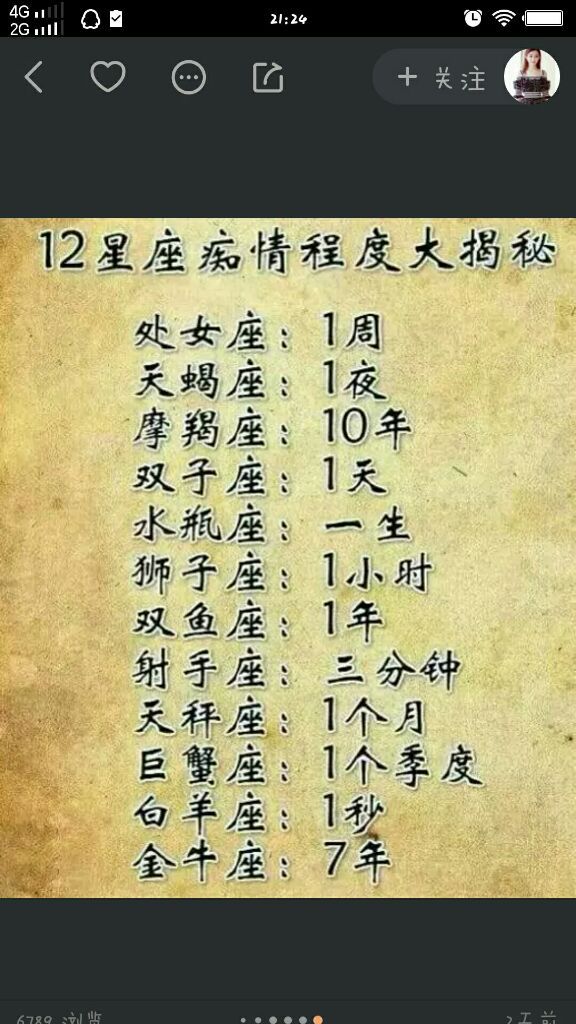 4G
2G
21:24
+ 关注
12星座痴情程度大揭秘
处女座：1周
天蝎座：1夜
摩羯座：10年
双子座：1天
水瓶座：一生
狮子座：1小时
双鱼座：1年
射手座：三分钟
天秤座：1个月
巨蟹座：1个季度
白羊座：1秒
金牛座：7年
6789 浏览
2天前